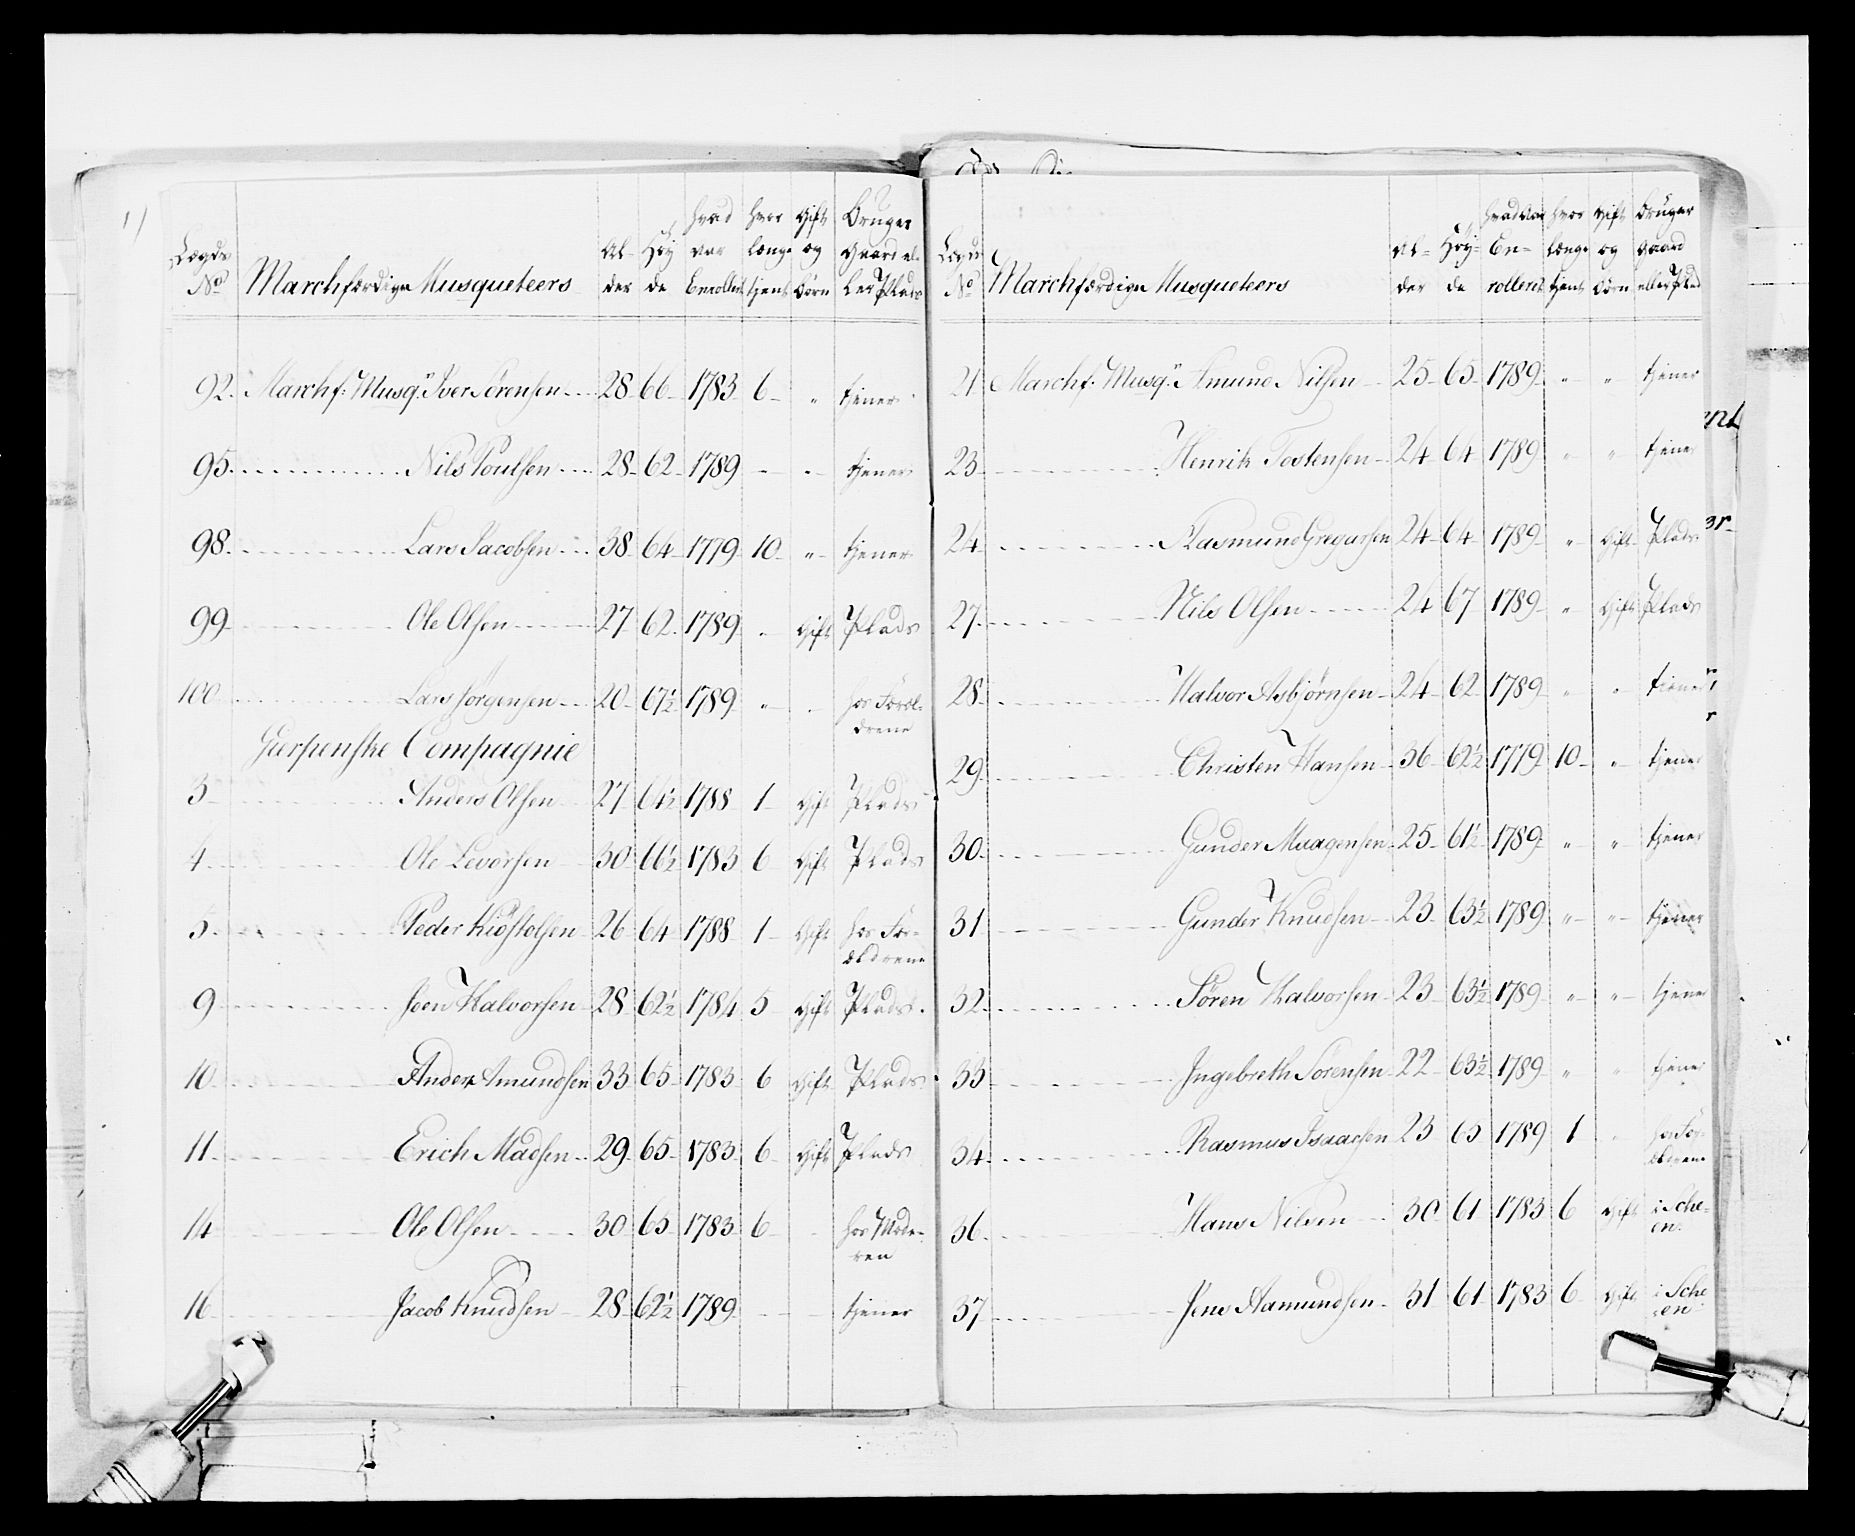 Lægds No Marchfærdige Musqueteers Al-der Höy de hvad var Enrollert hvor længe tjent Gift og Börn Bruger Gaard el-ler Plads
92. Marchf: Musq: Iver Sörensen 28 66 1783 6 " tjener
95. Nils Poulsen 28 62 1789 - - tjener
98. Lars Jacobsen 38 64 1779 10 " tjener
99 Ole Olsen 27 62 1789 - Gift Plads
100 Lars Jörgensen 20 67½ 1789 " - hos Foræl-
drene
Gierpenske Compagnie
3 Anders Olsen 27 64½ 1788 1 Gift Plads
4 Ole Levorsen 30 66½ 1783 6 Gift Plads
5 Peder Kiöstolsen 26 64 1788 1 Gift hos For-
ældrene
9 Joen Halvorsen 28 62½ 1784 5 Gift Plads
10 Anders Amundsen 33 65 1783 6 Gift Plads
11 Erich Madsen 29 65 1783 6 Gift Plads
14 Ole Olsen 30 65 1783 6 - hos Mode-
ren
16 Jacob Knudsen 28 62½ 1789 - - tjener
Lægds No Marchfærdige Musqueteers Al-der Höy-de hvad var En-rollert hvor længe tjent Gift og Börn Bruger Gaard eller Plads
21 Marchf: Musq: Amund Nilsen 25 65 1789 " " tjener
23 Henrik Tostensen 24 64 1789 " " tjener
24 Rasmund Gregersen 24 64 1789 " Gift Plads
27. Nils Olsen 24 67 1789 " Gift Plads
28. Halvor Asbjörnsen 24 62 1789 " " tjener
29 Christen Hansen 36 62½ 1779 10 " tjener
30 Gunder Maagensen 25 61½ 1789 " " tjener
31 Gunder Knudsen 23 63½ 1789 " " tjener
32. Sören Halvorsen 23 63½ 1789 " " tjener
33 Ingebreth Sörensen 22 63½ 1789 " " tjener
34 Rasmus Isaacsen 23 65 1789 1 " hos For-
ældrene
36. Hans Nilsen 30 61 1783 6 Gift i Sche-
en
37 Jens Aamundsen 31 61 1783 6 Gift i Sche
en